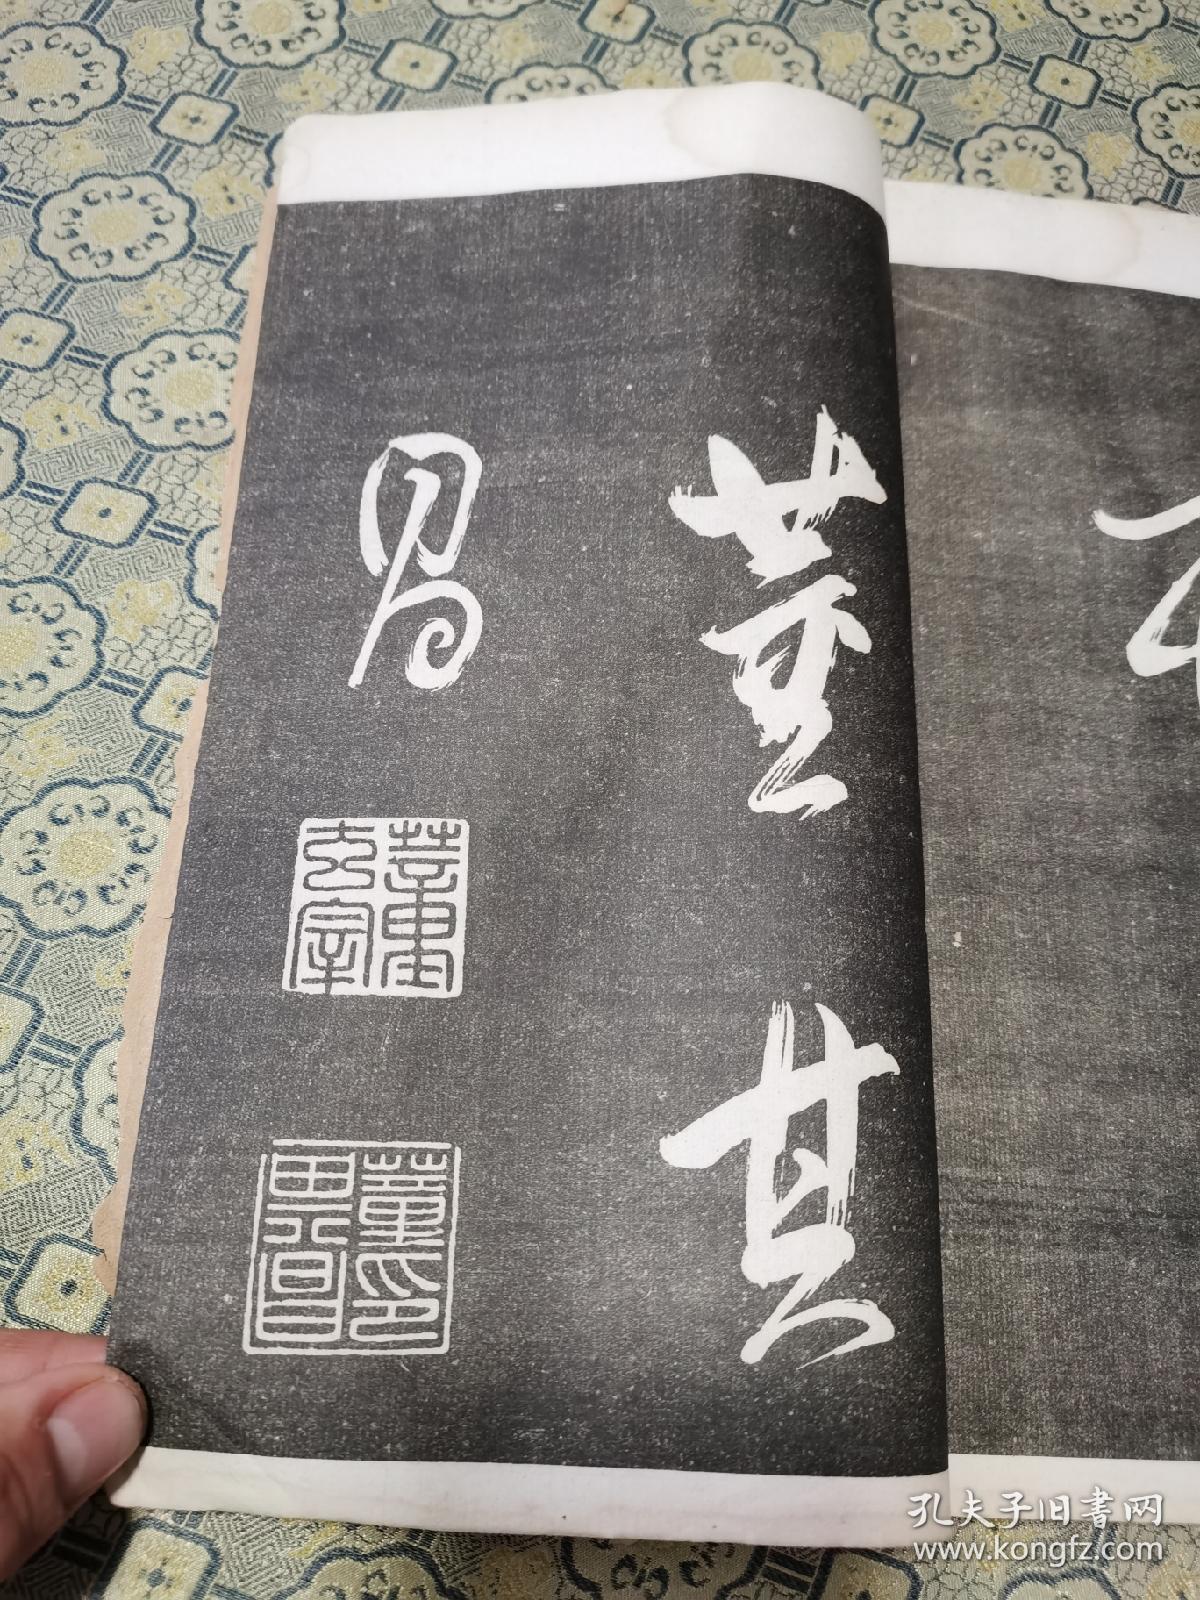 董其
昌
董玄宰
董印其昌
孔夫子旧書网
www.kongfz.com